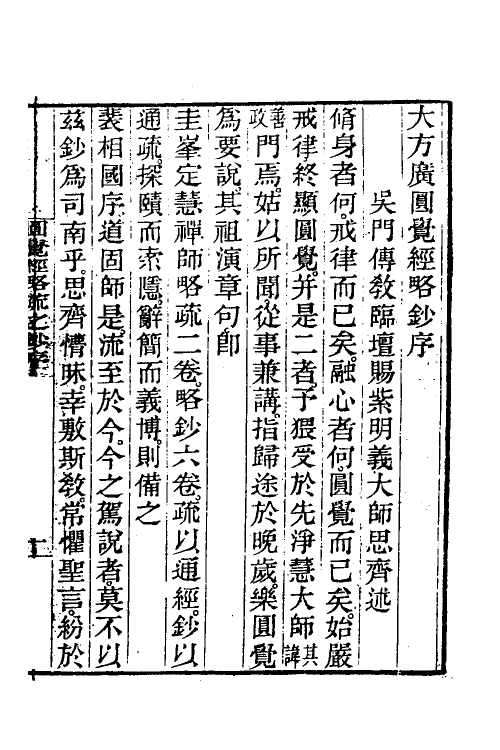 大方廣圓覺經略鈔序
吳門傳教臨壇賜紫明義大師思齊述
脩身者何。戒律而已矣。融心者何。圓覺而已矣。始嚴
戒律終顯圓覺。并是二者。予猥受於先淨慧大師諱其
善政門焉。姑以所聞。從事兼講。指歸途於晚歲。樂圓覺
爲要說。其祖演章句。卽
圭峯定慧禪師略疏二卷。略鈔六卷。疏以通經。鈔以
通疏。探賾而索隱。辭簡而義博。則備之
裴相國序。道固師是。流至於今。今之駕說者。莫不以
茲鈔爲司南乎。思齊懵昧。幸敷斯教。常懼聖言。紛於
圓覺經略疏之鈔序
一